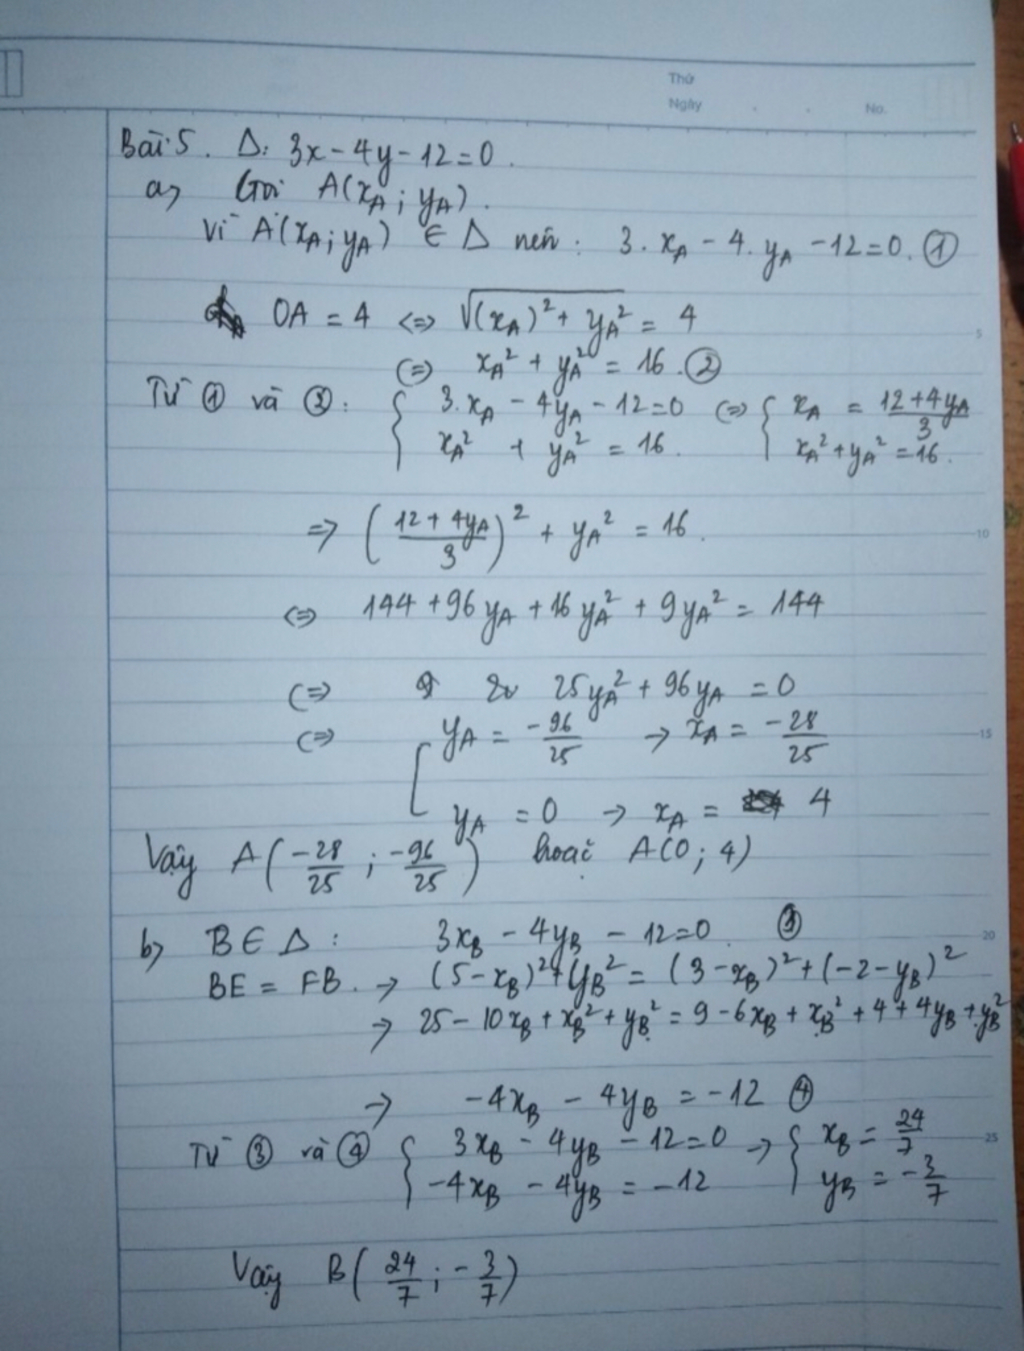 Thứ
Ngày . . No.
Bài 5. Δ: 3x - 4y - 12 = 0.
a, Gọi A(x_A; y_A).
Vì A(x_A; y_A) ∈ Δ nên: 3. x_A - 4. y_A - 12 = 0. ①
OA = 4 <=> √((x_A)² + y_A²) = 4
<=> x_A² + y_A² = 16. ②
Từ ① và ②: { 3.x_A - 4y_A - 12 = 0 <=> { x_A = (12 + 4y_A)/3
x_A² + y_A² = 16. x_A² + y_A² = 16.
=> ((12 + 4y_A)/3)² + y_A² = 16.
<=> 144 + 96y_A + 16y_A² + 9y_A² = 144
<=> 25y_A² + 96y_A = 0
<=> [ y_A = -96/25 → x_A = -28/25
y_A = 0 → x_A = 4
Vậy A(-28/25; -96/25) hoặc A(0; 4)
b, B ∈ Δ: 3x_B - 4y_B - 12 = 0. ③
BE = FB. → (5 - x_B)² + y_B² = (3 - x_B)² + (-2 - y_B)²
→ 25 - 10x_B + x_B² + y_B² = 9 - 6x_B + x_B² + 4 + 4y_B + y_B²
→ -4x_B - 4y_B = -12 ④
Từ ③ và ④ { 3x_B - 4y_B - 12 = 0 → { x_B = 24/7
-4x_B - 4y_B = -12 y_B = -3/7
Vậy B(24/7; -3/7)
5
10
15
20
25